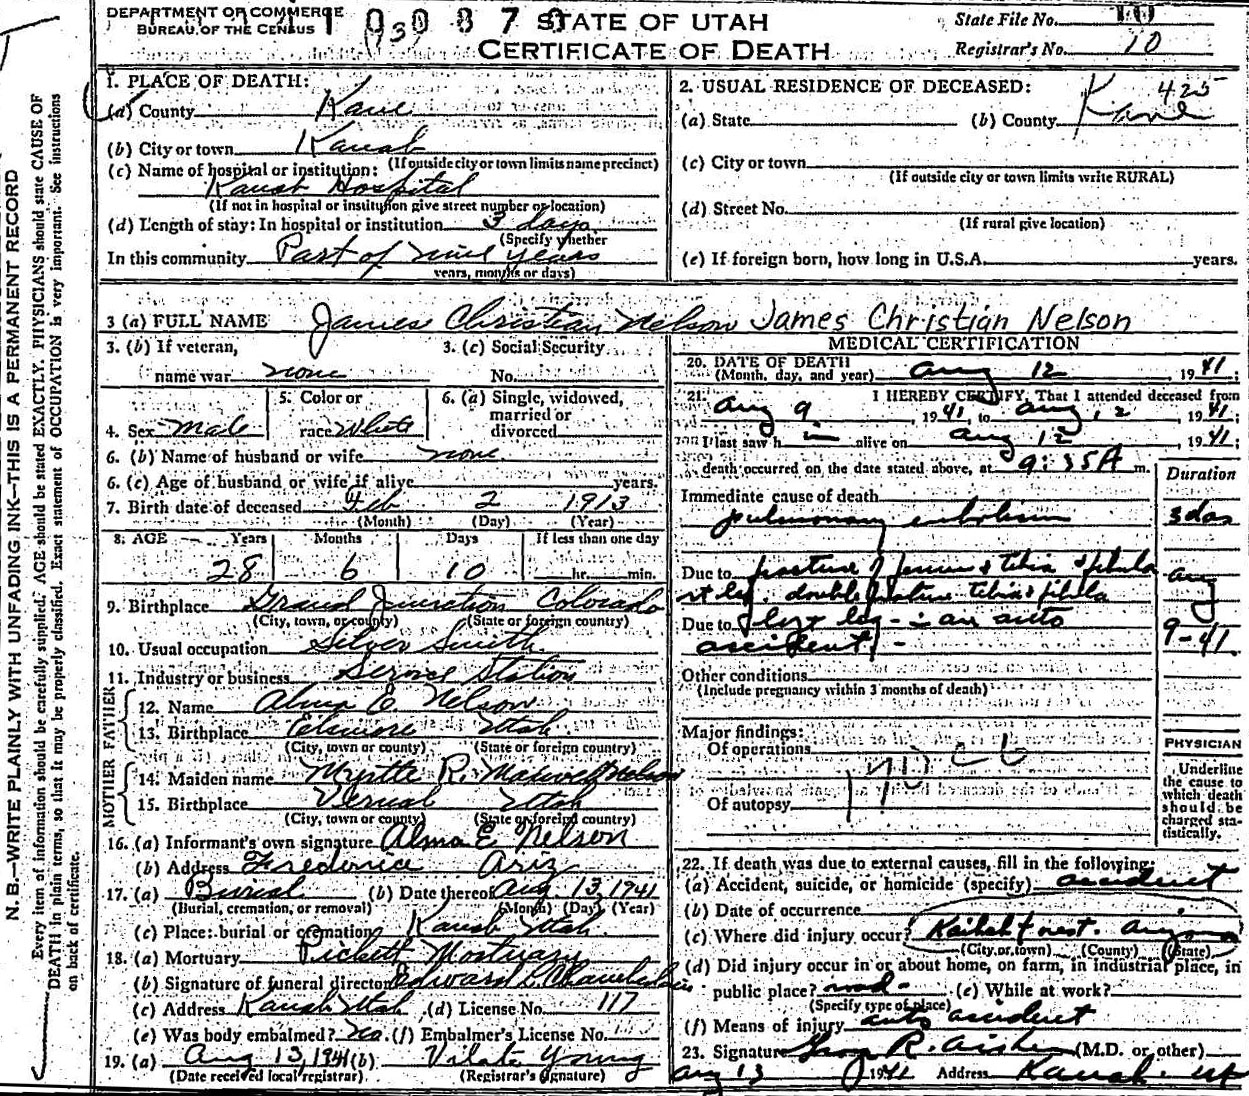 DEPARTMENT OF COMMERCE
BUREAU OF THE CENSUS
STATE OF UTAH
CERTIFICATE OF DEATH
State File No. 10
Registrar's No. 10
N. B.—WRITE PLAINLY WITH UNFADING INK—THIS IS A PERMANENT RECORD
Every item of information should be carefully supplied. AGE should be stated EXACTLY. PHYSICIANS should state CAUSE OF
DEATH in plain terms, so that it may be properly classified. Exact statement of OCCUPATION is very important. See instructions
on back of certificate.
1. PLACE OF DEATH:
(a) County Kane
(b) City or town Kanab
(If outside city or town limits name precinct)
(c) Name of hospital or institution:
Kanab Hospital
(If not in hospital or institution give street number or location)
(d) Length of stay: In hospital or institution 3 days
(Specify whether
In this community Part of nine years
years, months or days)
2. USUAL RESIDENCE OF DECEASED:
425
(a) State (b) County Kane
(c) City or town
(If outside city or town limits write RURAL)
(d) Street No.
(If rural give location)
(e) If foreign born, how long in U.S.A. years.
3 (a) FULL NAME James Christian Nelson James Christian Nelson
3. (b) If veteran,
name war none
3. (c) Social Security
No.
4. Sex Male
5. Color or
race White
6. (a) Single, widowed,
married or
divorced
6. (b) Name of husband or wife none
6. (c) Age of husband or wife if alive years.
7. Birth date of deceased Feb 2 1913
(Month) (Day) (Year)
8. AGE Years Months Days If less than one day
28 6 10 hr. min.
9. Birthplace Grand Junction Colorado
(City, town, or county) (State or foreign country)
10. Usual occupation Silver Smith
11. Industry or business Service Station
FATHER
12. Name Alma E. Nelson
13. Birthplace Elsinore Utah
(City, town or county) (State or foreign country)
MOTHER
14. Maiden name Myrtle R. Maxwell Nelson
15. Birthplace Vernal Utah
(City, town or county) (State or foreign country)
16. (a) Informant's own signature Alma E Nelson
(b) Address Fredonia Ariz
17. (a) Burial (b) Date thereof Aug 13, 1941
(Burial, cremation, or removal) (Month) (Day) (Year)
(c) Place: burial or cremation Kanab Utah.
18. (a) Mortuary Pickett Mortuary
(b) Signature of funeral director Edward L Chamberlain
(c) Address Kanab Utah (d) License No. 117
(e) Was body embalmed? No. (f) Embalmer's License No.
19. (a) Aug 13, 1941 (b) Vilate Young
(Date received local registrar) (Registrar's signature)
MEDICAL CERTIFICATION
20. DATE OF DEATH
(Month, day, and year) Aug 12, 1941;
21. I HEREBY CERTIFY, That I attended deceased from
Aug 9, 1941, to Aug 12, 1941;
I last saw him alive on Aug 12, 1941;
death occurred on the date stated above, at 9:35A m.
Duration
Immediate cause of death
pulmonary embolism 3 das
Due to fracture of femur & tibia & fibula Aug
rt leg. double fracture tibia & fibula
Due to left leg - in an auto 9-41.
accident -
Other conditions
(Include pregnancy within 3 months of death)
Major findings:
Of operations
Of autopsy
PHYSICIAN
Underline
the cause to
which death
should be
charged sta-
tistically.
22. If death was due to external causes, fill in the following:
(a) Accident, suicide, or homicide (specify) accident
(b) Date of occurrence
(c) Where did injury occur? Kaibab forest. Arizona
(City, or town) (County) (State)
(d) Did injury occur in or about home, on farm, in industrial place, in
public place? road (e) While at work?
(Specify type of place)
(f) Means of injury auto accident
23. Signature R. Aiken (M.D. or other)
Aug 13 1941 Address Kanab - Ut